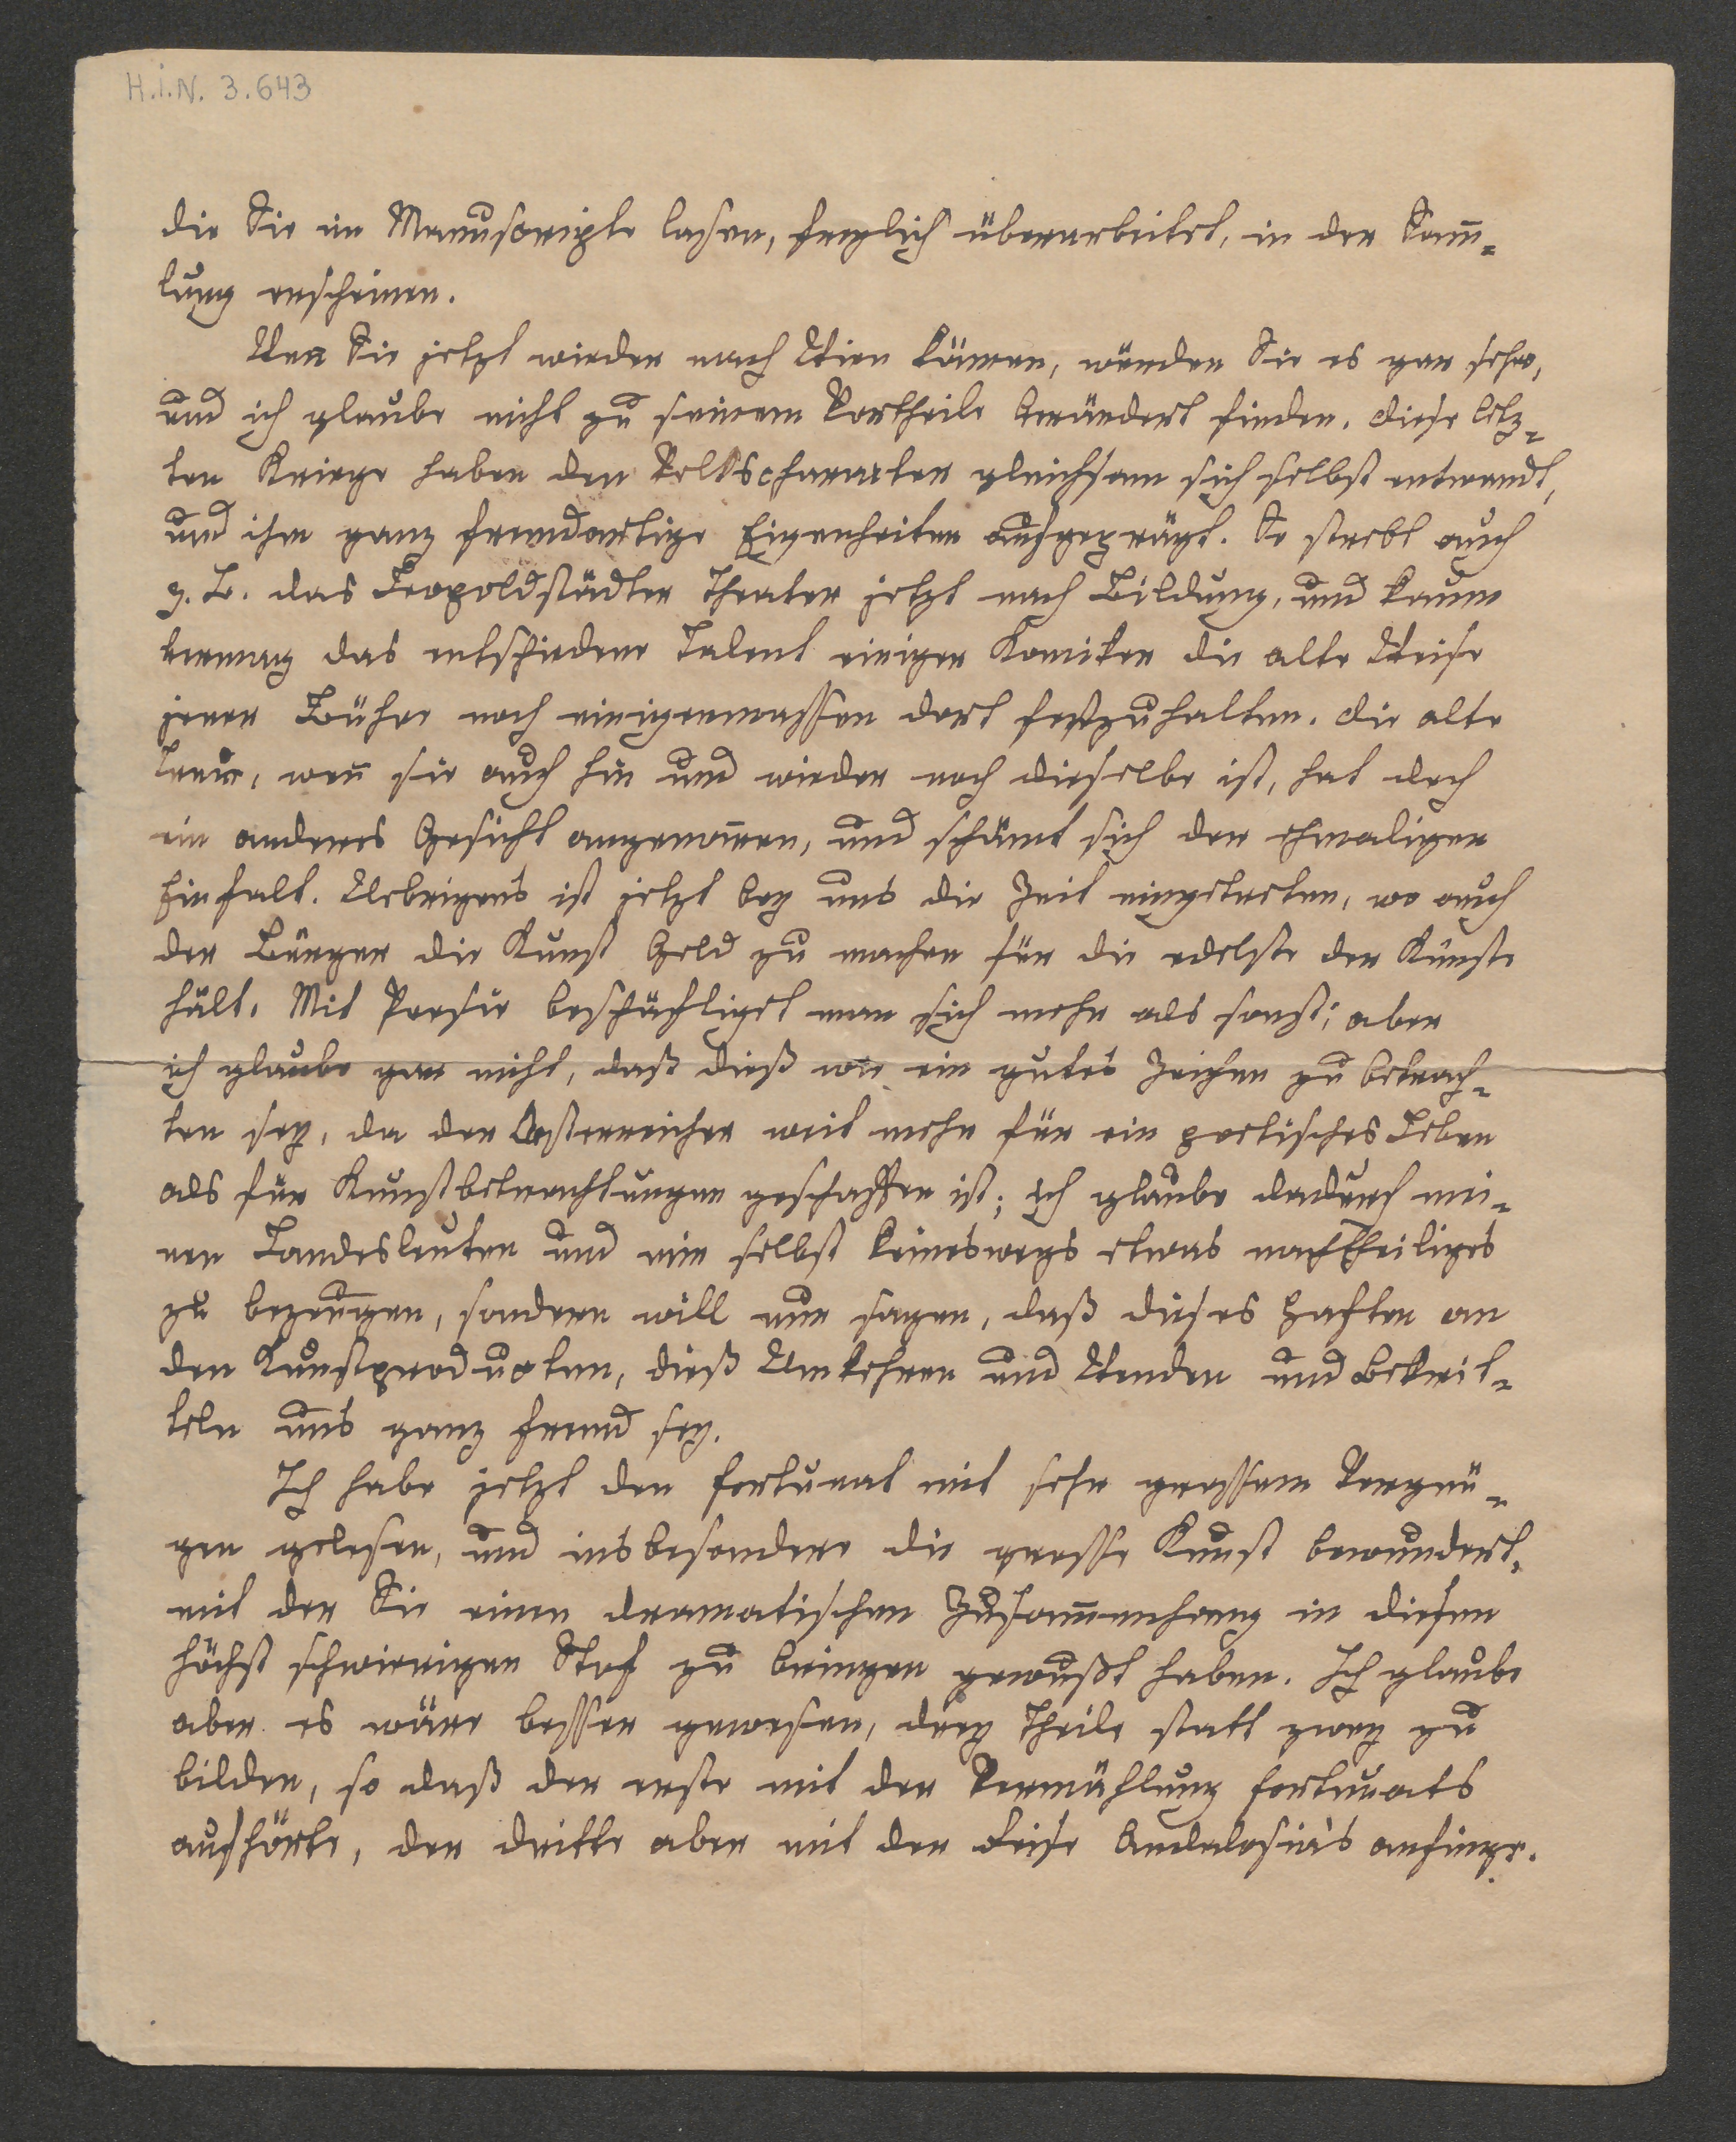 H.I.N. 3.643
die Sie im Manuscripte lasen, freylich überarbeitet, in der Sam̅-
lung erscheinen.
Wen̅ Sie jetzt wieder nach Wien kämen, würden Sie es gar sehr,
und ich glaube nicht zu seinem Vortheile verändert finden. Diese letz-
ten Kriege haben den Volkscharacter gleichsam sich selbst entwandt,
und ihm ganz fremdartige Eigenheiten aufgeprägt. So strebt auch
z. B. das Leopoldstädter Theater jetzt nach Bildung, und kaum
vermag das entschiedene Talent einiger Komiker die alte Weise
jener Bühne noch einigermassen dort festzuhalten. Die alte
Treue, wen̅ sie auch hin und wieder noch dieselbe ist, hat doch
ein anderes Gesicht angenom̅en, und schämt sich der ehmaligen
Einfalt. Uebrigens ist jetzt bey uns die Zeit eingetreten, wo auch
der Bürger die Kunst Geld zu machen für die edelste der Künste
hält. Mit Poesie beschäftiget man sich mehr als sonst; aber
ich glaube gar nicht, daß dieß wie ein gutes Zeichen zu betrach-
ten sey, da der Oesterreicher weit mehr für ein poetisches Leben
als für Kunstbetrachtungen geschaffen ist; ich glaube dadurch mei-
nen Landesleuten und mir selbst keineswegs etwas nachtheiliges
zu bezeugen, sondern will nur sagen, daß dieses Haften an
den Kunstproducten, dieß Umkehren und Wenden und Bekrit-
teln uns ganz fremd sey.
Ich habe jetzt den Fortunat mit sehr grossem Vergnü-
gen gelesen, und insbesondere die grosse Kunst bewundert,
mit der Sie einen dramatischen Zusam̅enhang in diesen
höchst schwierigen Stof zu bringen gewußt haben. Ich glaube
aber es wäre besser gewesen, drey Theile statt zwey zu
bilden, so daß der erste mit der Vermählung Fortunats
aufhörte, der dritte aber mit der Reise Andalosia's anfinge.